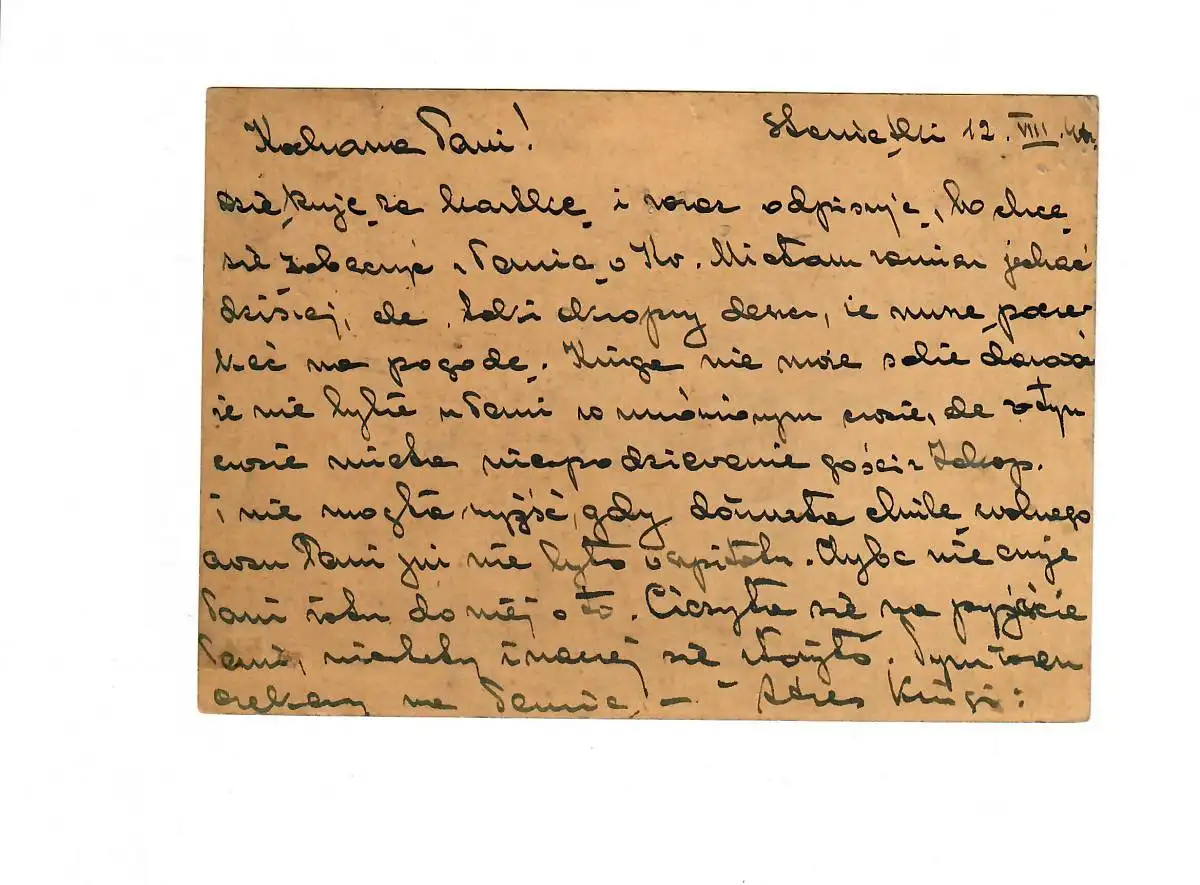 Kochana Pani! Staniątki 12.VIII.44.
dziękuję za kartkę i zaraz odpisuję, bo chcę
się zobaczyć z Panią o Kr. Miałam zamiar jechać
dzisiaj, ale taki okropny deszcz, że muszę pocze-
kać na pogodę. Kinga nie może sobie darować
że nie była u Pani w umówionym czasie, ale w tym
czasie miała niespodziewanie gości z Zakop.
i nie mogła wyjść, gdy chwilę wolnego
czasu Pani już nie było w szpitalu. Chyba nie czuje
Pani żalu do niej o to. Cieszyła się na przyjście
Pani, inaczej się złożyło. Tym razem
czekamy na Panią. — Adres Kingi: